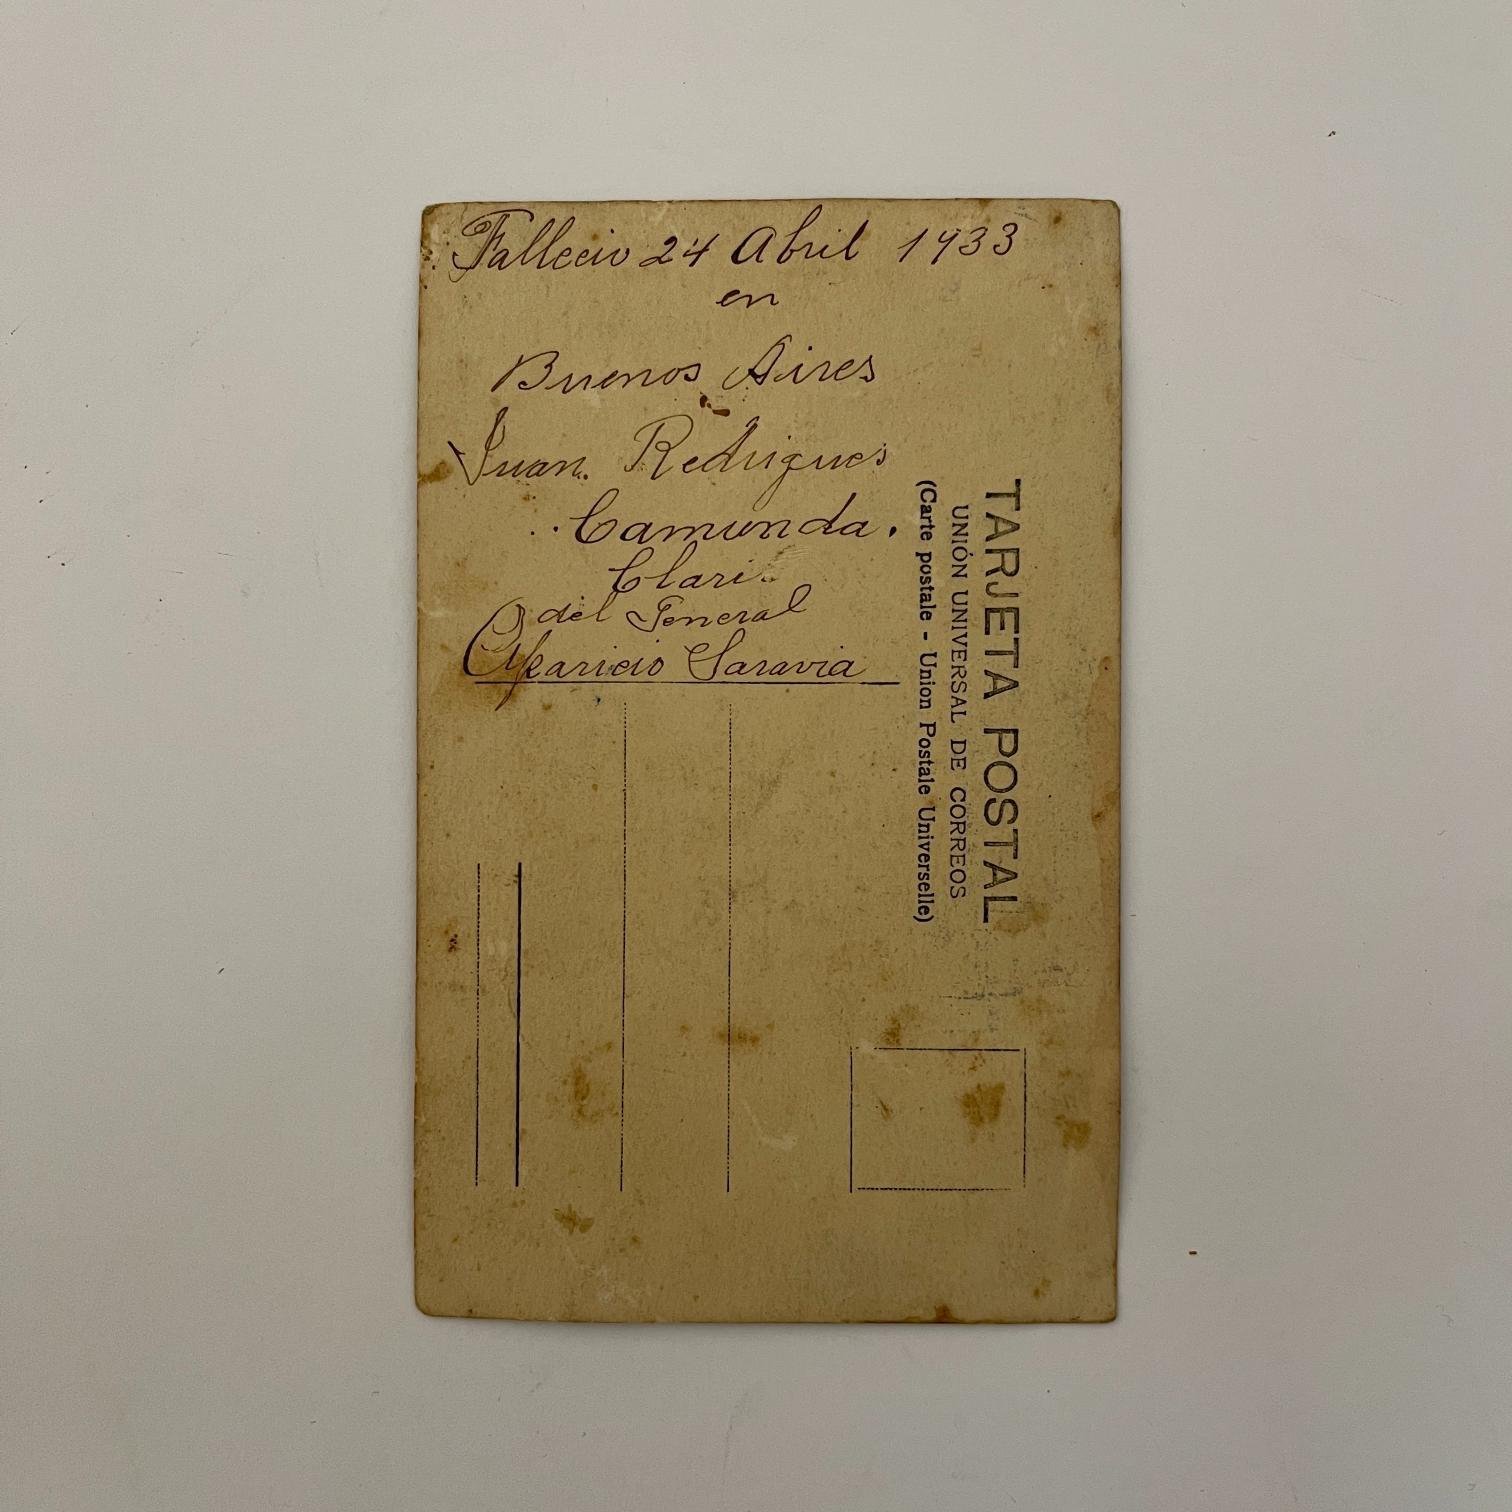 Fallecio 24 Abril 1933
en
Buenos Aires
Juan. Redrigues
Camunda.
Clari
del General
Aparicio Saravia
TARJETA POSTAL
UNIÓN UNIVERSAL DE CORREOS
(Carte postale - Union Postale Universelle)